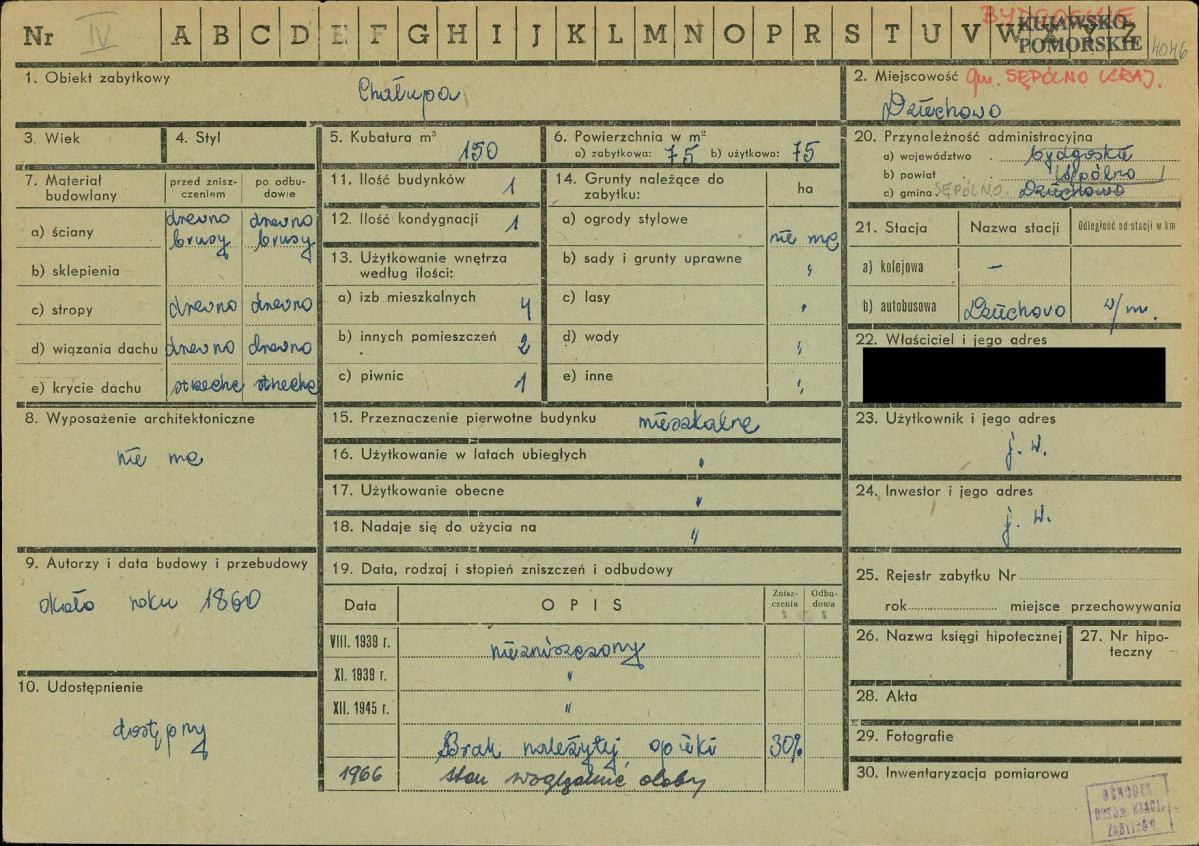 Nr IV A B C D E F G H I J K L M N O P R S T U V W Z
BYDGOSKIE
KUJAWSKO-
POMORSKIE
4046
1. Obiekt zabytkowy
Chałupa
2. Miejscowość gm. SĘPÓLNO KRAJ.
Dziechowo
3. Wiek
4. Styl
5. Kubatura m³
150
6. Powierzchnia w m²
a) zabytkowa: 75 b) użytkowa: 75
20. Przynależność administracyjna
a) województwo bydgoskie
b) powiat Sępólno
c) gmina SĘPÓLNO Dziechowo
7. Materiał budowlany
przed zniszczeniem
po odbudowie
a) ściany drewno brusy drewno brusy
b) sklepienia
c) stropy drewno drewno
d) wiązania dachu drewno drewno
e) krycie dachu strzecha strzecha
11. Ilość budynków 1
12. Ilość kondygnacji 1
13. Użytkowanie wnętrza
według ilości:
a) izb mieszkalnych 4
b) innych pomieszczeń 2
c) piwnic 1
14. Grunty należące do
zabytku:
ha
a) ogrody stylowe nie ma
b) sady i grunty uprawne "
c) lasy "
d) wody "
e) inne "
21. Stacja Nazwa stacji Odległość od stacji w km
a) kolejowa –
b) autobusowa Dziechowo w/m.
22. Właściciel i jego adres
8. Wyposażenie architektoniczne
nie ma
15. Przeznaczenie pierwotne budynku mieszkalne
16. Użytkowanie w latach ubiegłych "
17. Użytkowanie obecne "
18. Nadaje się do użycia na "
23. Użytkownik i jego adres
j. w.
24. Inwestor i jego adres
j. w.
9. Autorzy i data budowy i przebudowy
około roku 1860
10. Udostępnienie
dostępny
19. Data, rodzaj i stopień zniszczeń i odbudowy
Data OPIS Zniszczenia % Odbudowa %
VIII. 1939 r. niezniszczony
XI. 1939 r. "
XII. 1945 r. "
Brak należytej opieki 30%
1966 stan względnie dobry
25. Rejestr zabytku Nr
rok miejsce przechowywania
26. Nazwa księgi hipotecznej
27. Nr hipoteczny
28. Akta
29. Fotografie
30. Inwentaryzacja pomiarowa
OŚRODEK
DOKUM. ENACJI
ZABYTKÓW